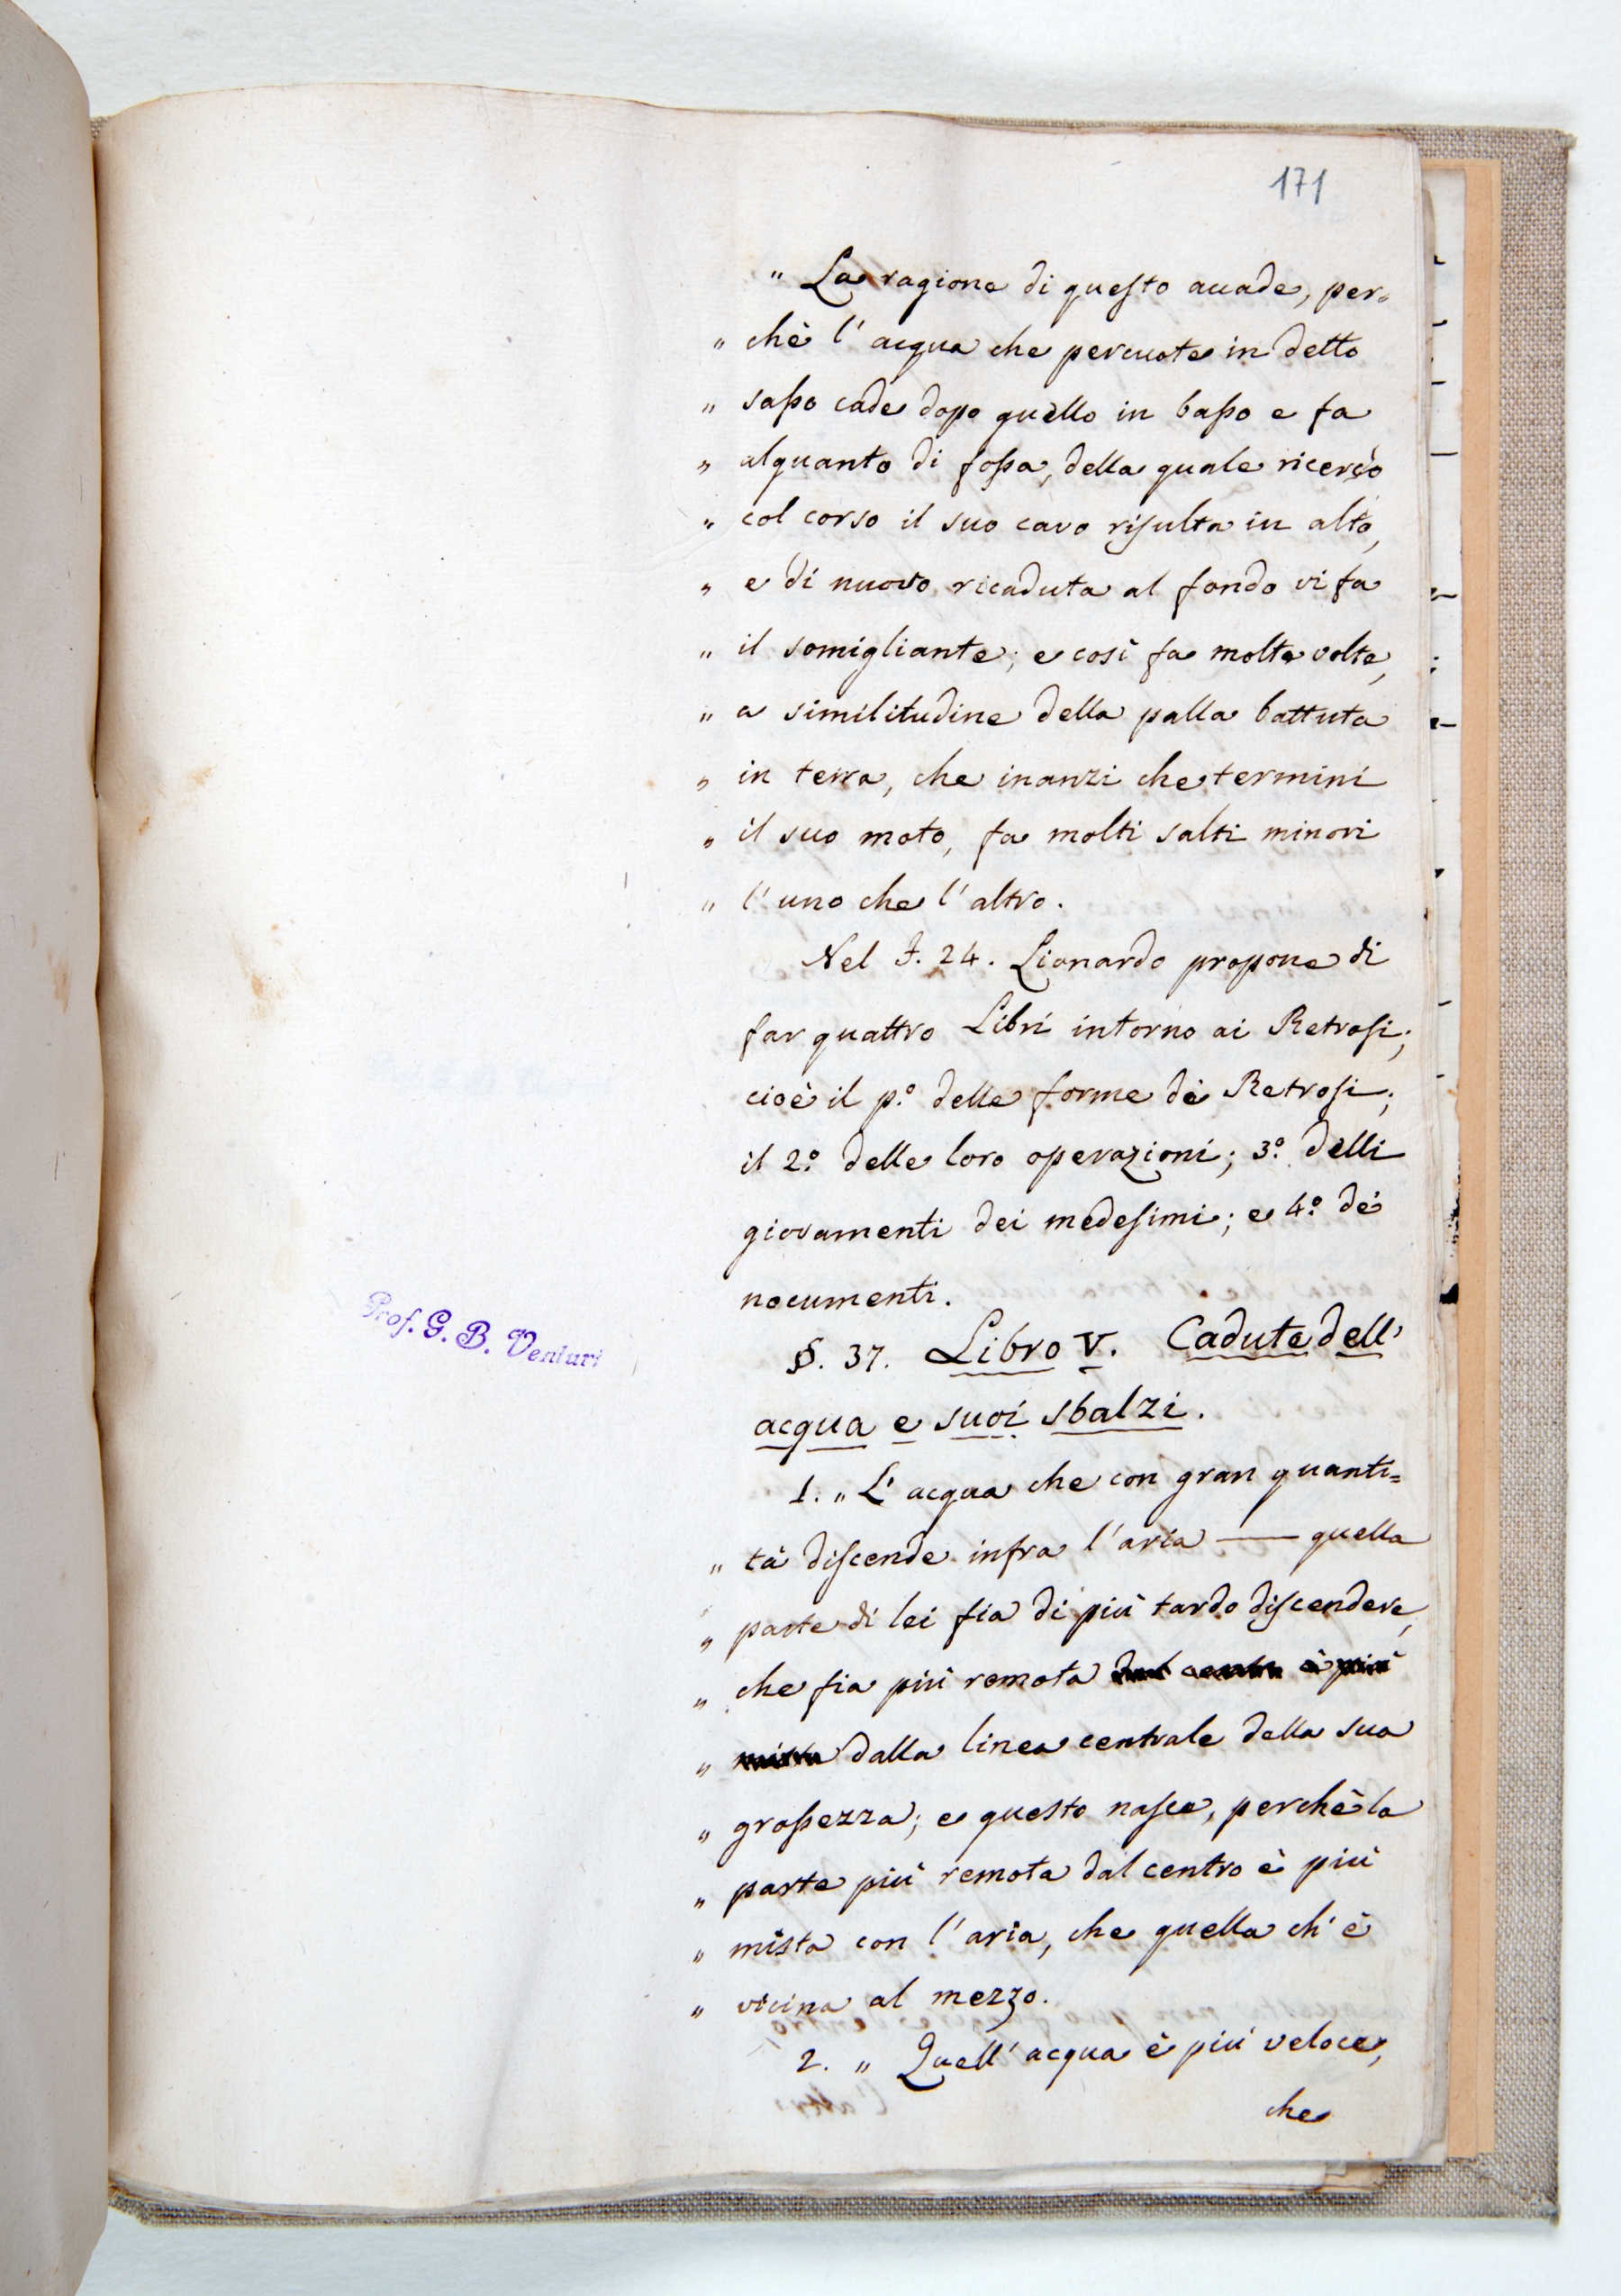 171
" La ragione di questo accade, per-
" chè l'acqua che percuote in detto
" sasso cade dopo quello in basso e fa
" alquanto di fossa, della quale ricerço
" col corso il suo cavo risulta in alto,
" e di nuovo ricaduta al fondo vi fa
" il somigliante; e così fa molte volte,
" a similitudine della palla battuta
" in terra, che inanzi che termini
" il suo moto, fa molti salti minori
" l'uno che l'altro.
Nel F. 24. Lionardo propone di
far quattro Libri intorno ai Retrosi;
cioè il p.º delle forme de' Retrosi;
il 2.º delle loro operazioni; 3.º delli
giovamenti dei medesimi; e 4.º de'
nocumenti.
Prof. G. B. Venturi
§. 37. Libro V. Cadute dell'
acqua e suoi sbalzi.
1. " L'acqua che con gran quanti=
" tà discende infra l'aria — quella
" parte di lei fia di più tardo discendere,
" che fia più remota dal centro è più
" mista dalla linea centrale della sua
" grossezza; e questo nasce, perchè la
" parte più remota dal centro è più
" mista con l'aria, che quella ch'è
" vicina al mezzo.
2. " Quell'acqua è più veloce,
che